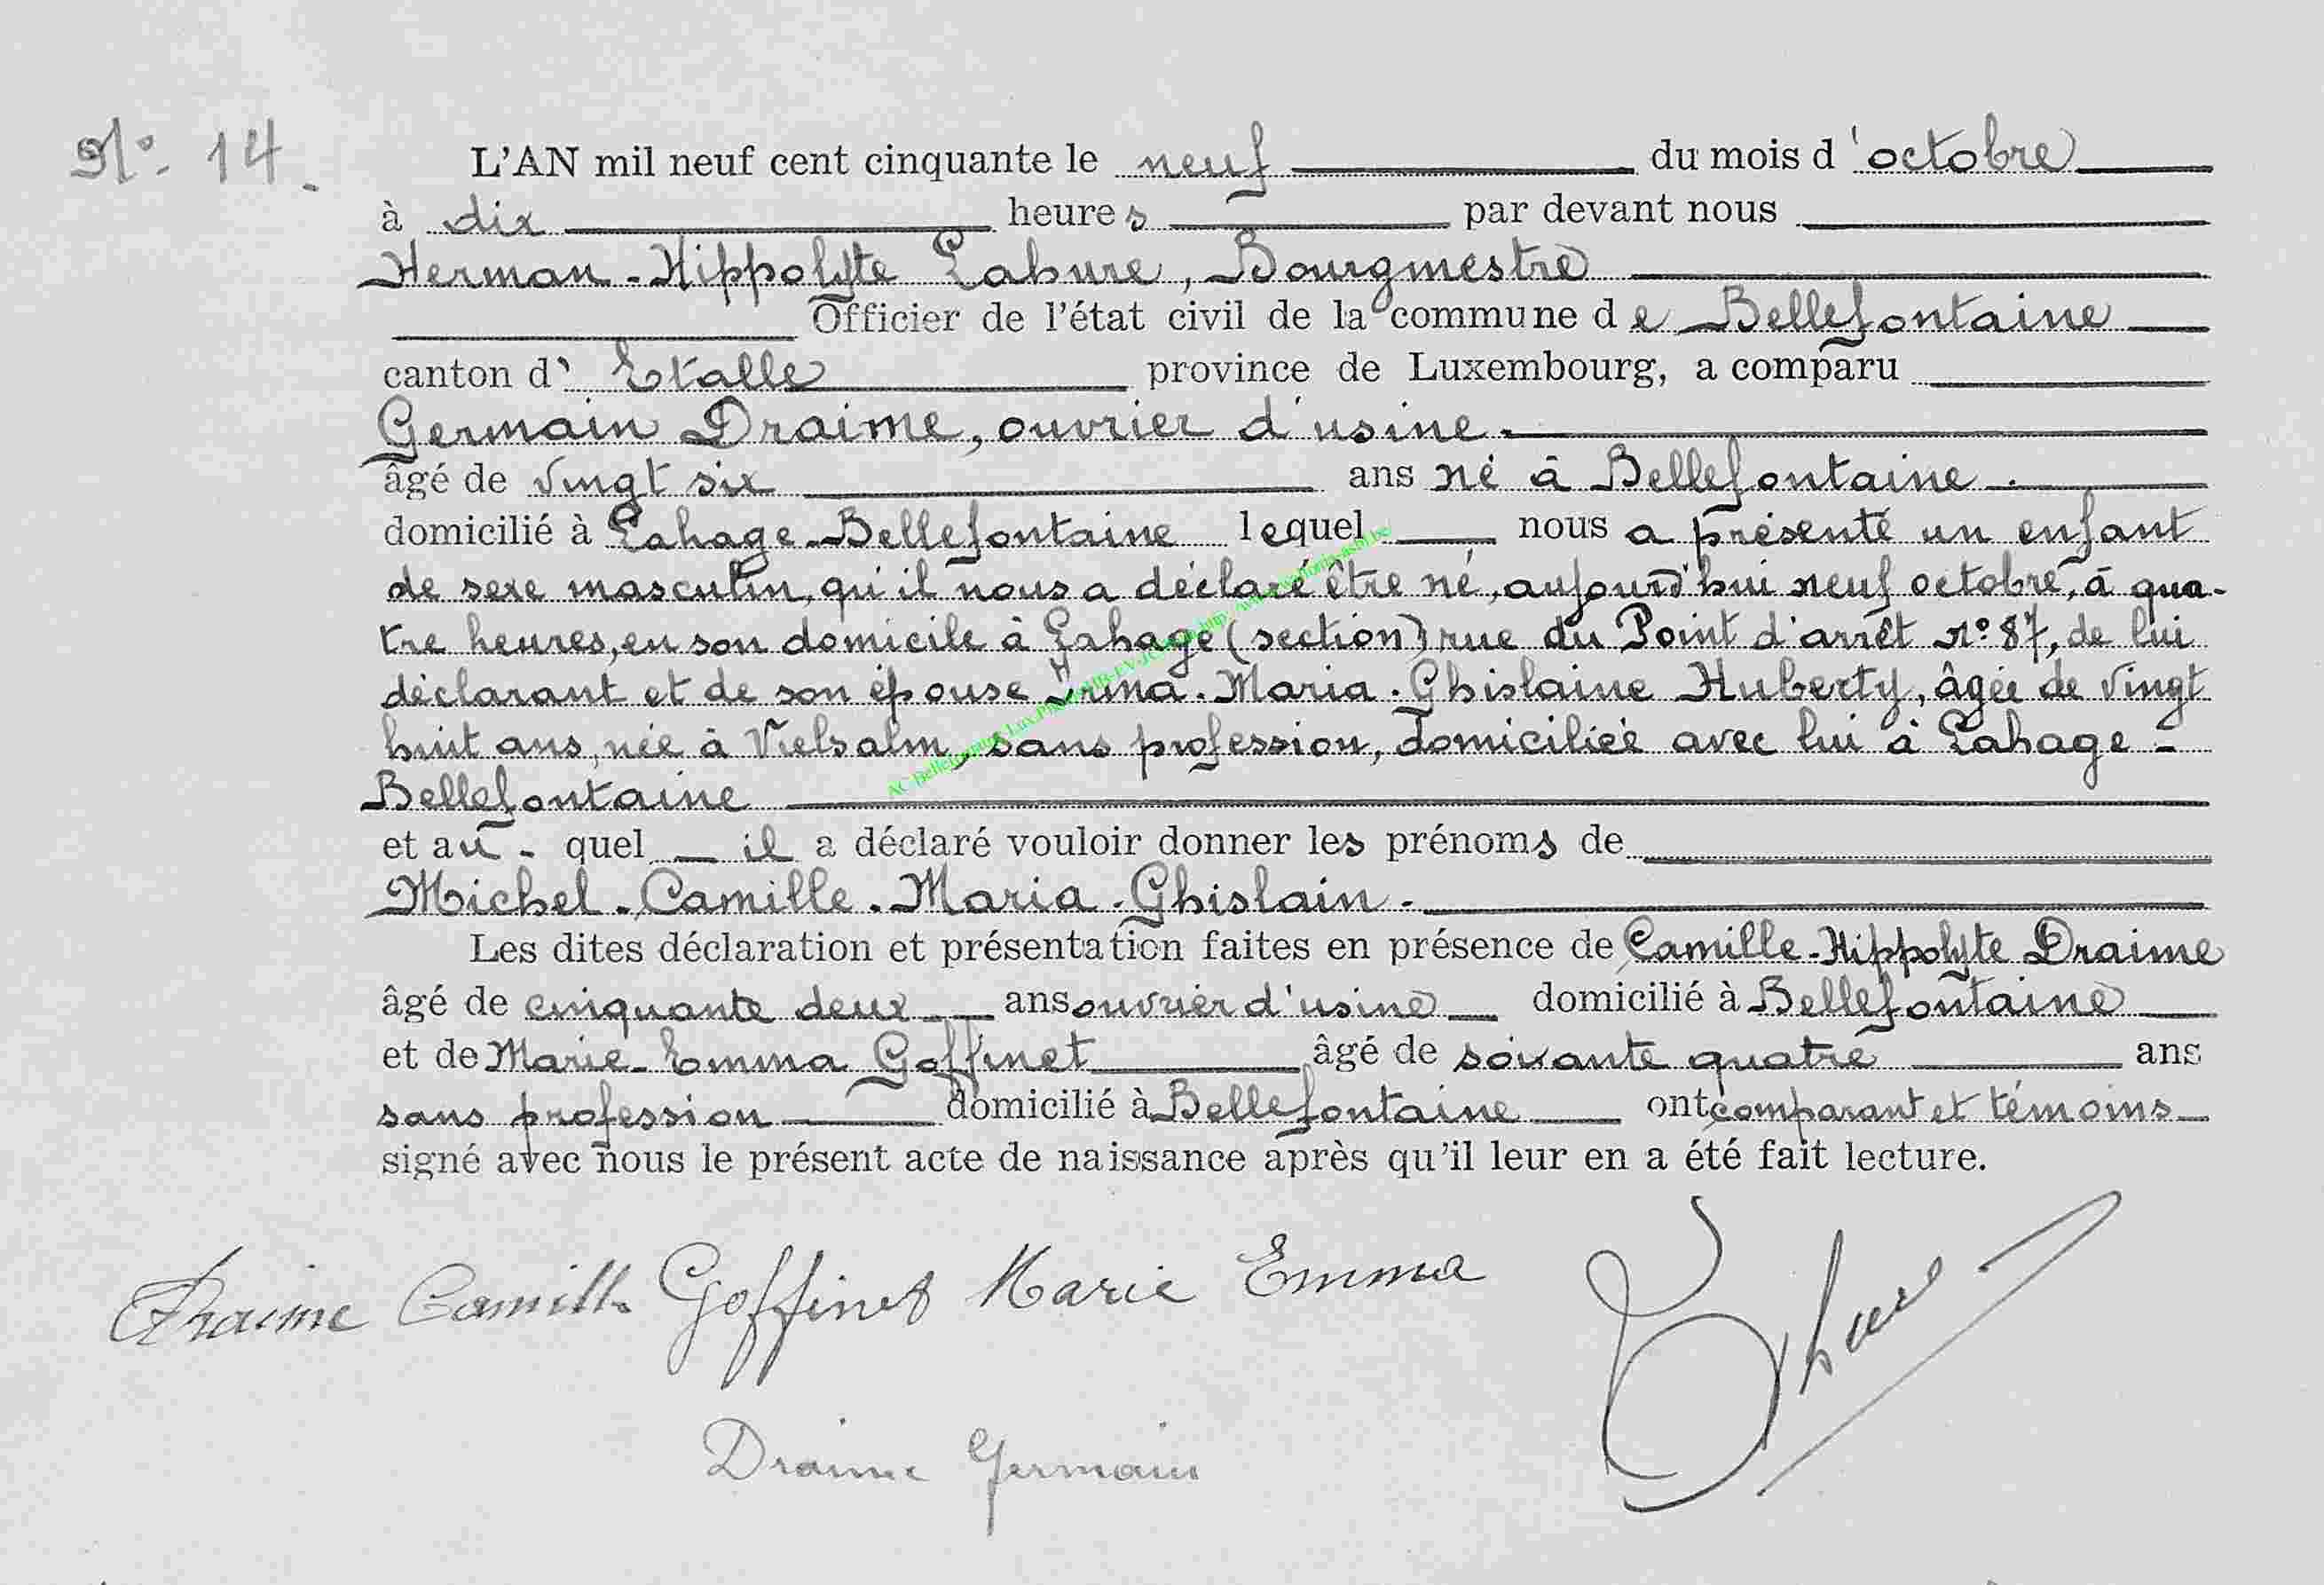 N° 14.
L'AN mil neuf cent cinquante le neuf du mois d'octobre
à dix heures par devant nous
Herman-Hippolyte Lahure, Bourgmestre
Officier de l'état civil de la commune de Bellefontaine
canton d' Etalle province de Luxembourg, a comparu
Germain Draime, ouvrier d'usine.
âgé de vingt six ans né à Bellefontaine.
domicilié à Lahage-Bellefontaine lequel nous a présenté un enfant
de sexe masculin, qu'il nous a déclaré être né, aujourd'hui neuf octobre, à qua-
tre heures, en son domicile à Lahage (section) rue du Point d'arrêt n° 87, de lui
déclarant et de son épouse Irma-Maria-Ghislaine Huberty, âgée de vingt
huit ans, née à Vielsalm, sans profession, domiciliée avec lui à Lahage-
Bellefontaine
et au-quel il a déclaré vouloir donner les prénoms de
Michel-Camille-Maria-Ghislain.
Les dites déclaration et présentation faites en présence de Camille-Hippolyte Draime
âgé de cinquante deux ans ouvrier d'usine domicilié à Bellefontaine
et de Marie-Emma Goffinet âgé de soixante quatre ans
sans profession domicilié à Bellefontaine ont comparant et témoins
signé avec nous le présent acte de naissance après qu'il leur en a été fait lecture.
Draime Camille Goffinet Marie Emma
Draime Germain